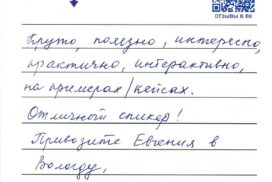 ОТЗЫВЫ В ВК
Круто, полезно, интересно,
практично, интерактивно,
на примерах/кейсах.
Отличный спикер!
Привозите Евгения в
Вологду,